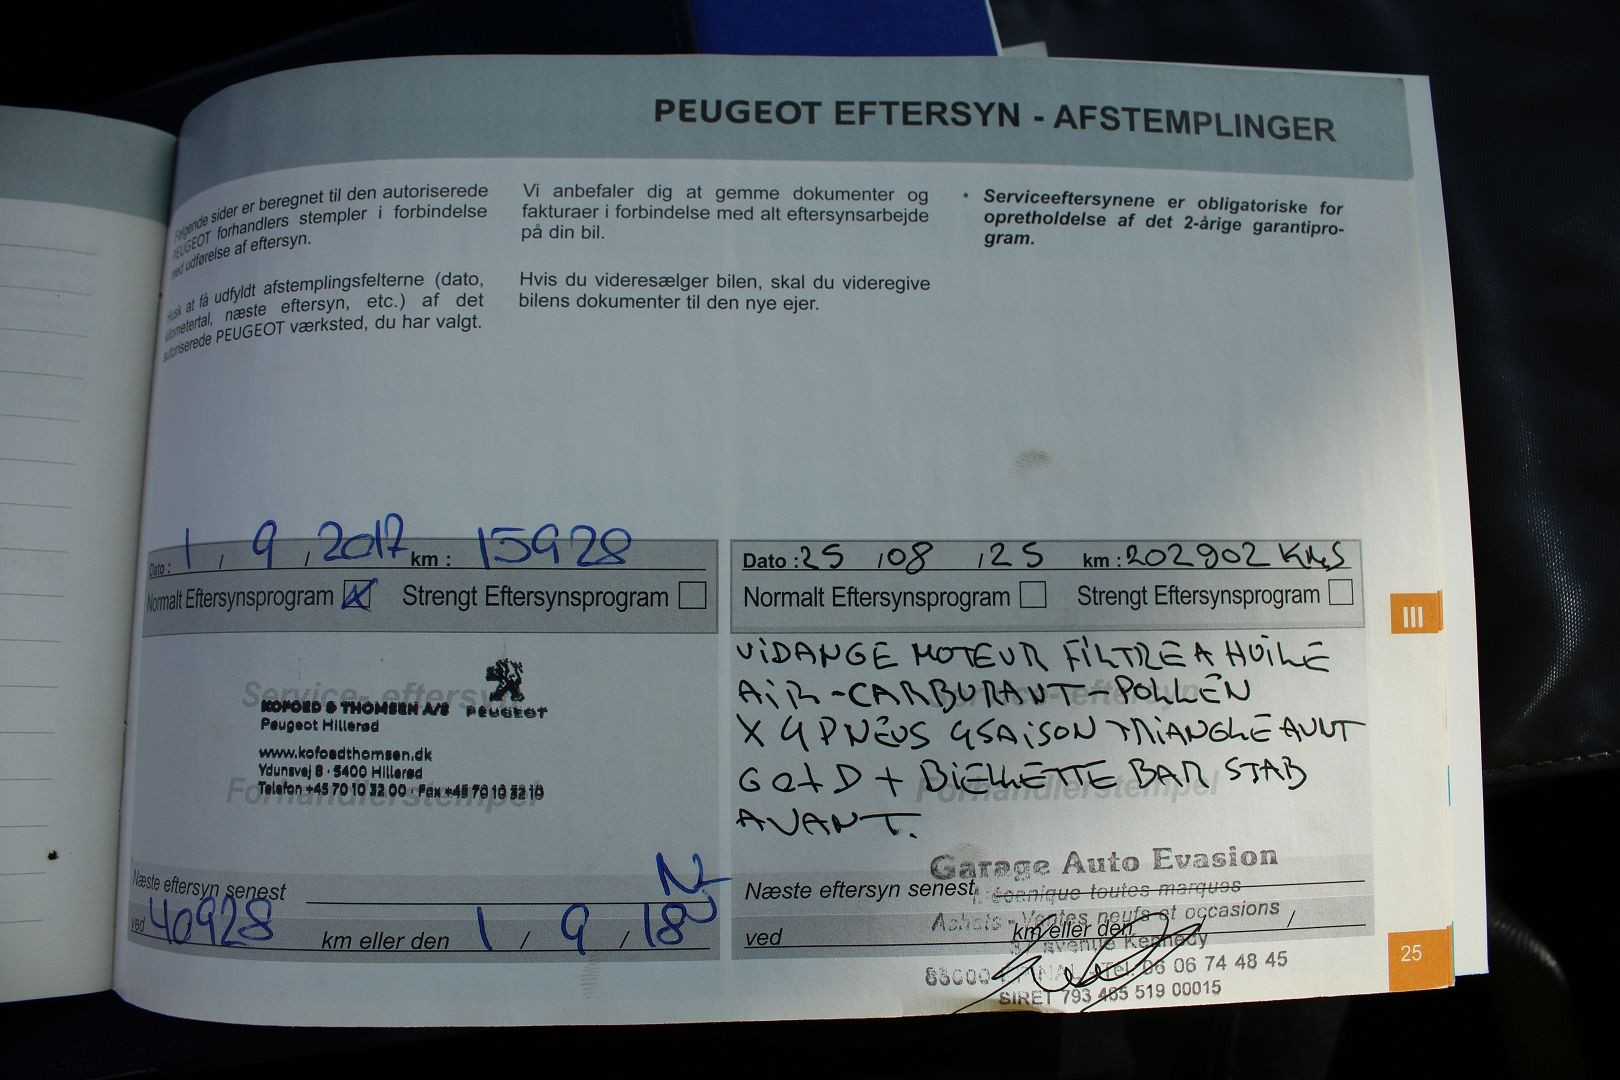 PEUGEOT EFTERSYN - AFSTEMPLINGER
Følgende sider er beregnet til den autoriserede
PEUGEOT forhandlers stempler i forbindelse
med udførelse af eftersyn.
Husk at få udfyldt afstemplingsfelterne (dato,
kilometertal, næste eftersyn, etc.) af det
autoriserede PEUGEOT værksted, du har valgt.
Vi anbefaler dig at gemme dokumenter og
fakturaer i forbindelse med alt eftersynsarbejde
på din bil.
Hvis du videresælger bilen, skal du videregive
bilens dokumenter til den nye ejer.
• Serviceeftersynene er obligatoriske for
opretholdelse af det 2-årige garantipro-
gram.
Dato : 1 / 9 / 2017 km : 15928
Normalt Eftersynsprogram Strengt Eftersynsprogram
Service- eftersyn
KOFOED & THOMSEN A/S PEUGEOT
Peugeot Hillerød
www.kofoedthomsen.dk
Ydunsvej 8 · 3400 Hillerød
Telefon +45 70 10 32 00 · Fax +45 70 10 32 10
Forhandlerstempel
Næste eftersyn senest
ved 40928 km eller den 1 / 9 / 18
Dato : 25 / 08 / 25 km : 202902 KMS
Normalt Eftersynsprogram Strengt Eftersynsprogram
VIDANGE MOTEUR FILTRE A HUILE
AIR - CARBURANT - POLLEN
X 4 PNEUS 4SAISON TRIANGLE AVNT
G et D + BIELLETTE BAR STAB
AVANT.
Forhandlerstempel
Garage Auto Evasion
Næste eftersyn senest
toutes marques
Achats - Ventes neufs et occasions
ved km eller den /
avenue Kennedy
Tel. 06 06 74 48 45
SIRET 793 485 519 00015
III
25